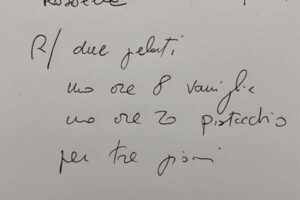 R/ due gelati
uno ore 8 vaniglia
uno ore 20 pistacchio
per tre giorni